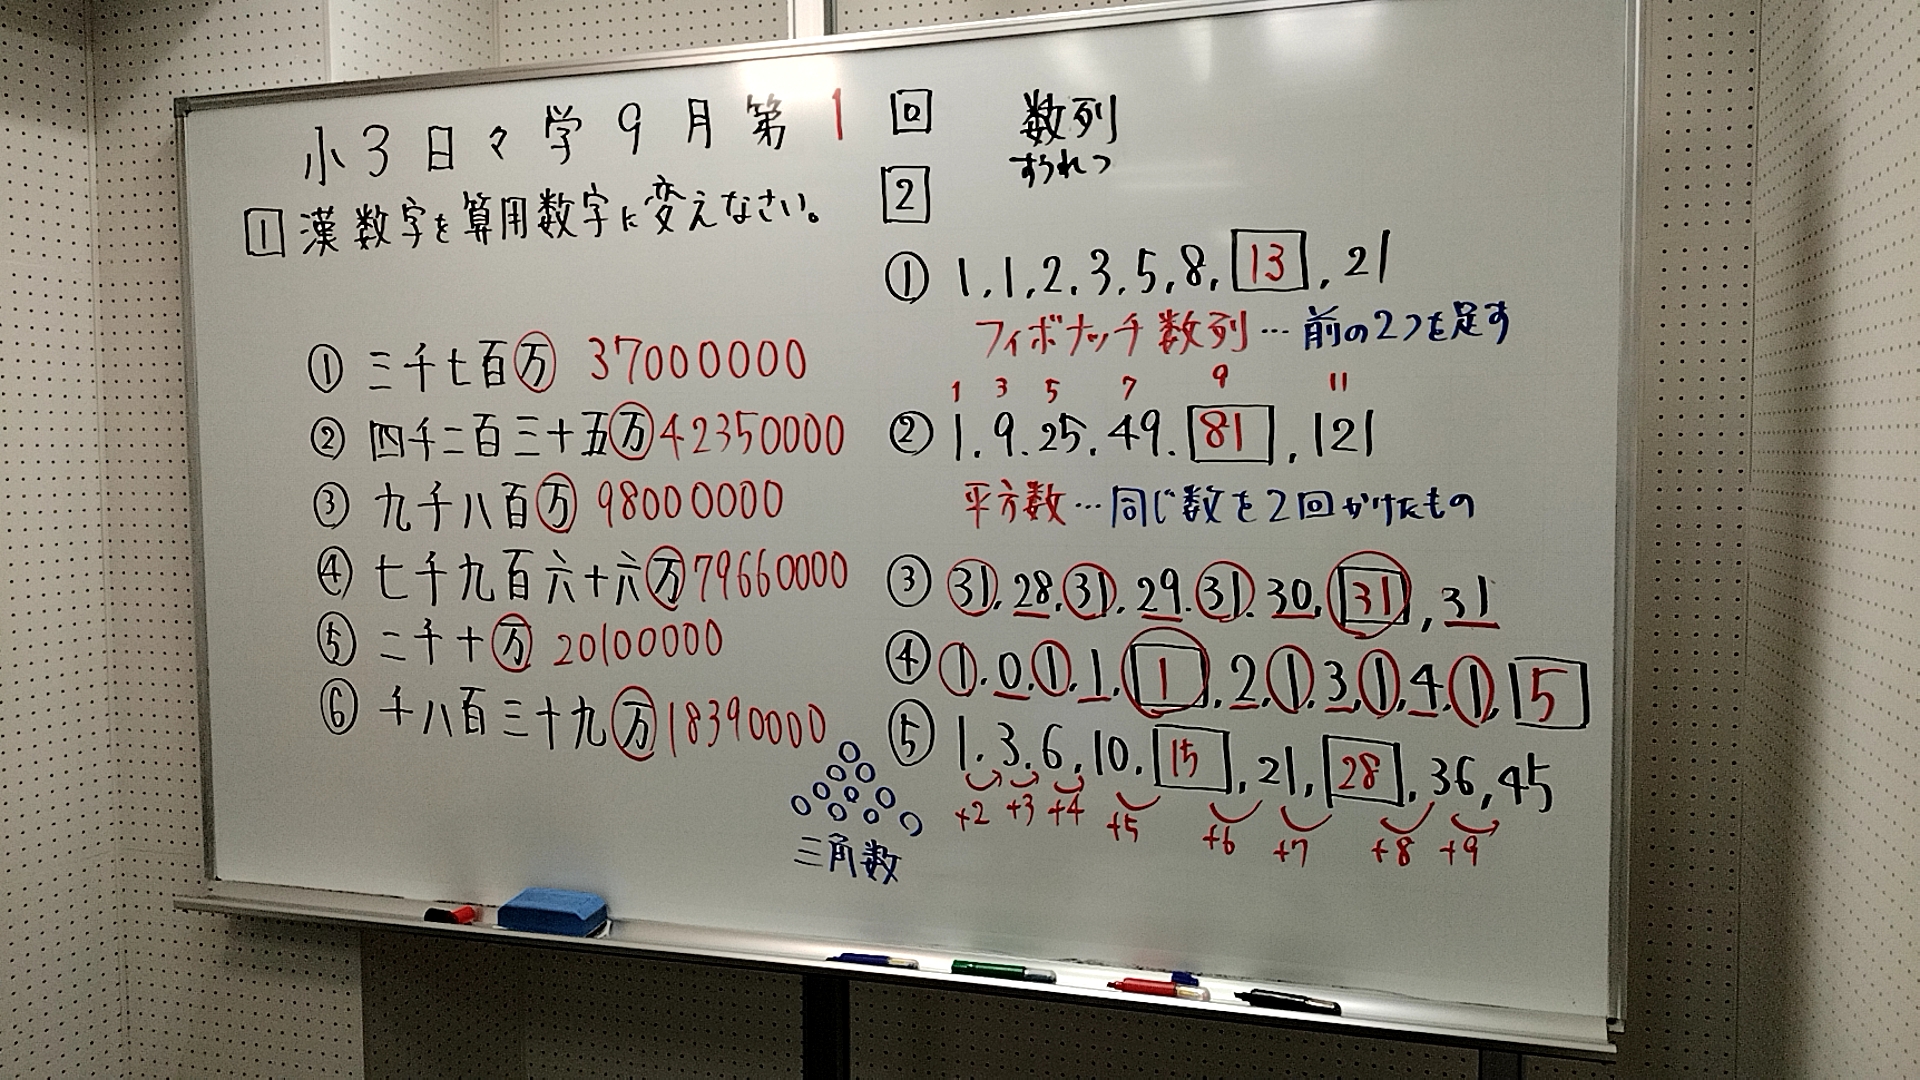 小3日々学9月第1回
1 漢数字を算用数字に変えなさい。
① 三千七百万 37000000
② 四千二百三十五万 42350000
③ 九千八百万 98000000
④ 七千九百六十六万 79660000
⑤ 二千十万 20100000
⑥ 千八百三十九万 18390000
数列
すうれつ
2
① 1, 1, 2, 3, 5, 8, 13, 21
フィボナッチ数列…前の2つを足す
1 3 5 7 9 11
② 1. 9. 25. 49. 81, 121
平方数…同じ数を2回かけたもの
③ 31. 28. 31. 29. 31. 30. 31, 31
④ 1. 0. 1. 1. 1. 2. 1. 3. 1. 4. 1. 5
⑤ 1. 3. 6. 10. 15, 21, 28. 36, 45
+2 +3 +4 +5 +6 +7 +8 +9
三角数